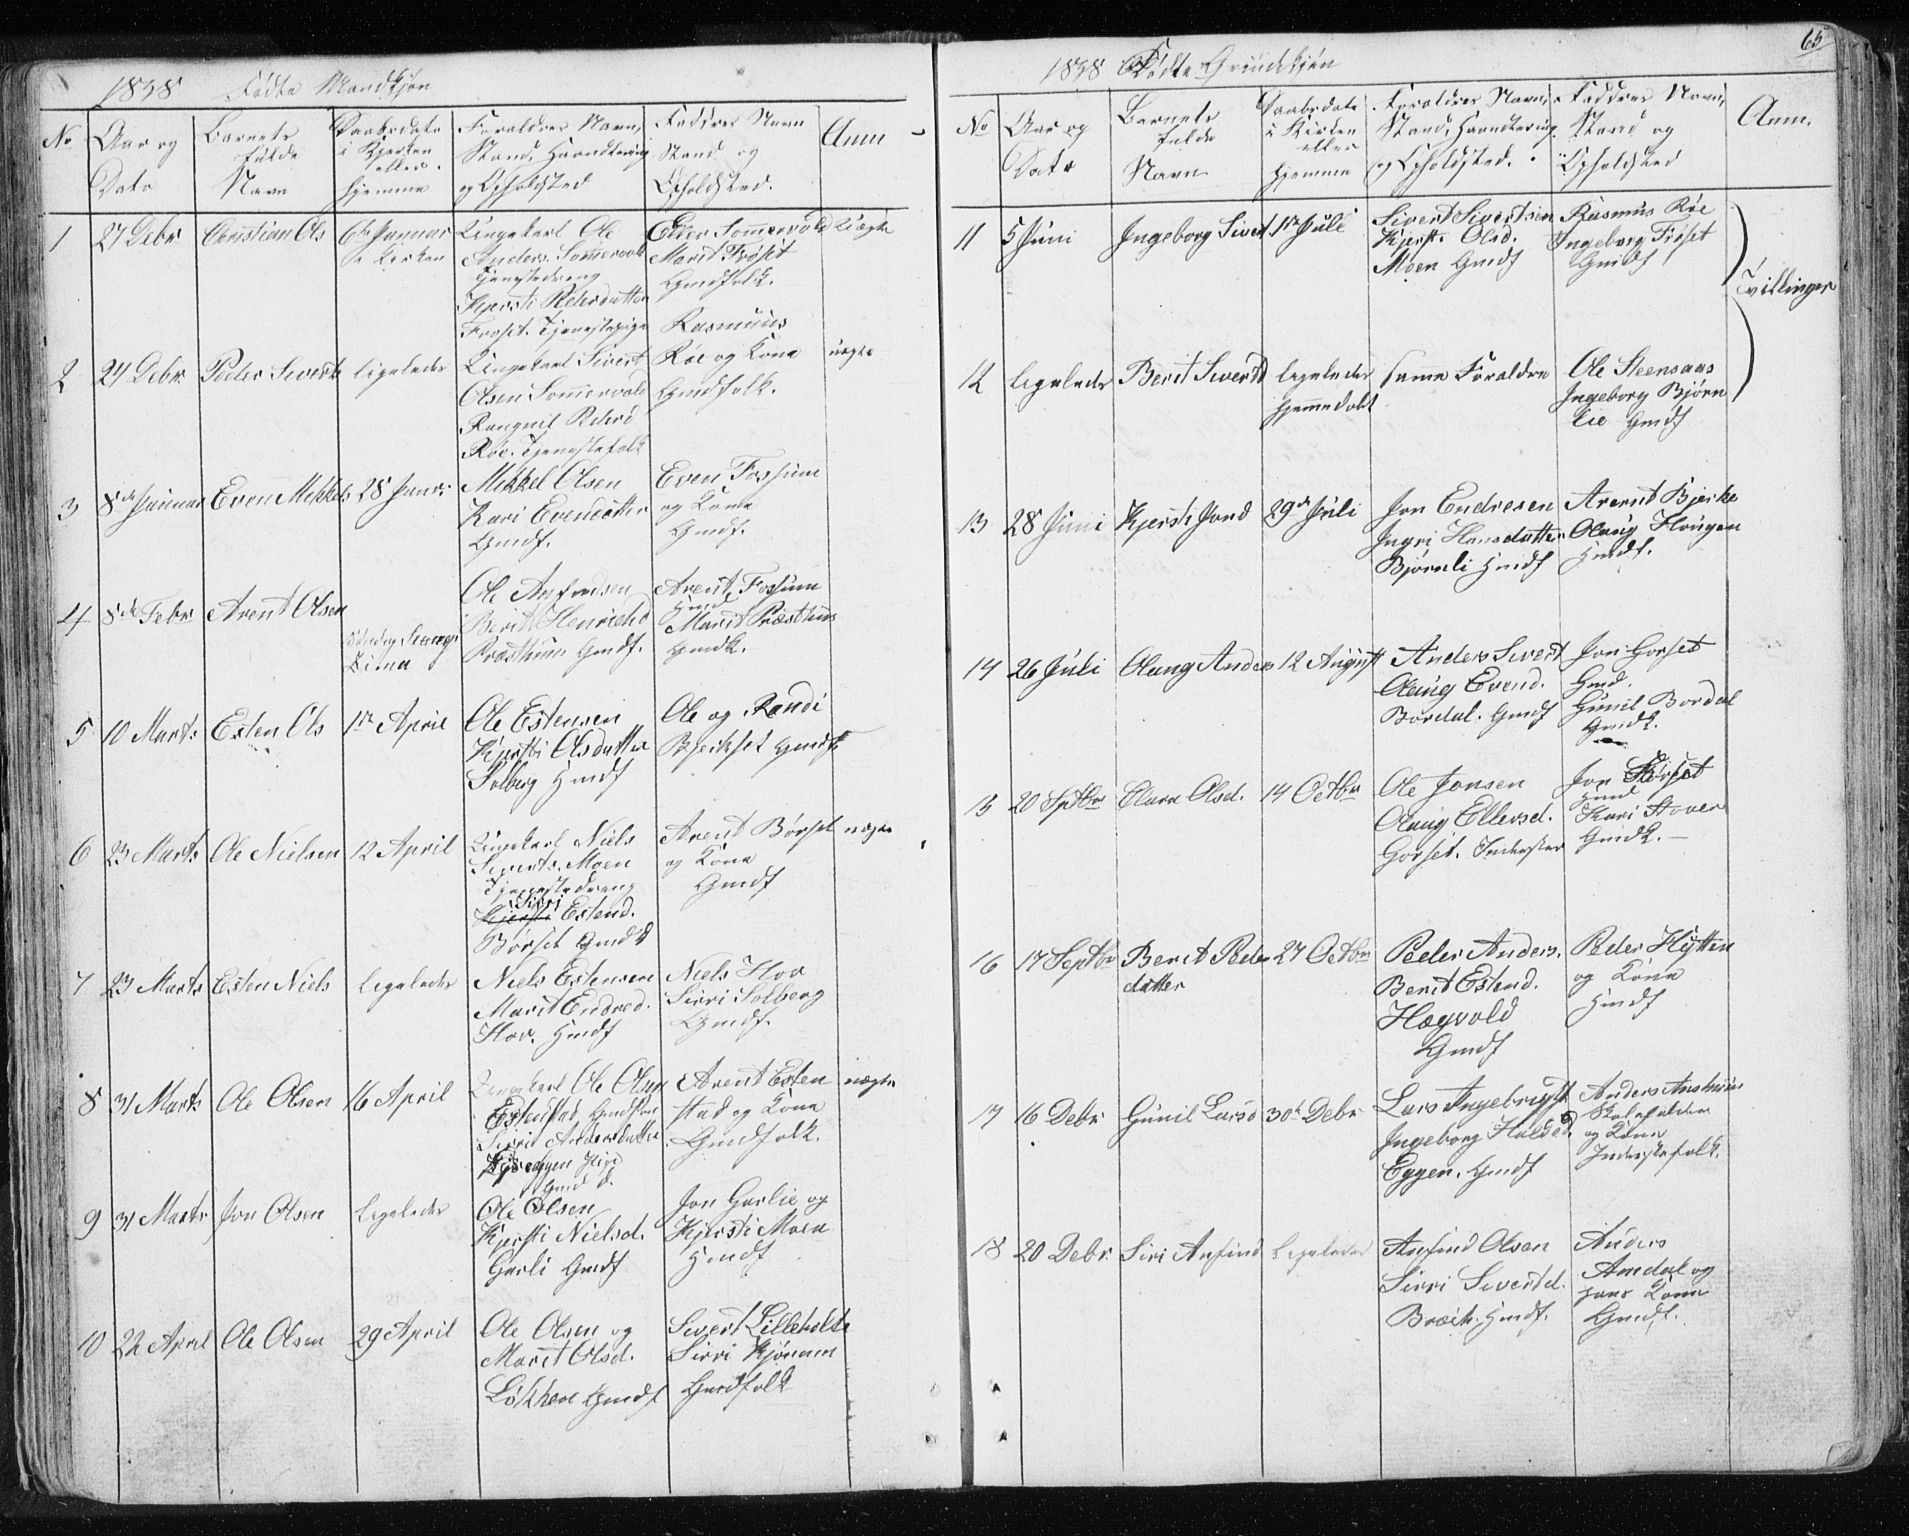 1838 Fødte Mandkjøn
No
Aar og
Dato
Barnets
fulde
Navn
Daabsdato
i Kjerken
eller
hjemme
Forældres Navn,
Stand, Haandtering
og Opholdsted
Faddres Navn
Stand og
Opholdsted.
Anm
1
27 Debr
Christian Ols
6te Januar
i Kirken
Ungekarl Ole
Anders. Sommervold
Tjenestedreng
Kjersti Pedersdatter
Frøset. Tjenestepige
Marit Frøset
Gmdfolk.
Uægte
2
24 Debr
Peder Siverts
ligeledes
Ungekarl Sivert
Olsen Sommervold
Pedersd
Røe. Tjenestefolk
Rasmus
Røe og Kone
Gmdfolk.
uægte
3
8de Januar
Even Mekkels
28 Janr.
Mekkel Olsen
Kari Evensdatter
Gmdf.
Even Fossum
og Kone
Gmdf.
4
8de Febr.
Arent Olsen
Ole
Berit Henrichsd
Præsthuus Gmdf.
Arent Fossum
Gmd
Marit Præsthuus
Gmdk.
5
10 Marts
Esten Ols
1ste April
Ole Estensen
Kjersti Olsdatter
Solberg Gmdf
Ole og Randi
Gmdf
6
23 Marts
Ole Nielsen
12 April
Ungekarl Niels
Siverts. Moen
Tjenestedreng
Siri
Kjersti Estend.
Børset Gmdd
Arent Børset
og Kone
Gmdf
uægte
7
23 Marts
Esten Niels
Ligeledes
Niels Estensen
Marit Endresd.
Hov. Gmdf
Niels Hov
Sirri Solberg
Gmdf.
8
31 Marts
Ole Olsen
16 April
Ungekarl Ole Olsen
Estenstad Gmdssøn
Sirri Andersdatter
Gmd d.
Arent Esten
stad og Kone
Gmdfolk.
uægte
9
31 Marts
Jon Olsen
Ligeledes
Ole Olsen
Kjersti Nielsd.
Garli Gmdf
Jon Garlie og
Kjersti Moen
Gmdf
10
22 April
Ole Olsen
29 April
Ole Olsen og
Marit Olsd.
Løkken Gmdf
Sivert Lilleholte
Sirri Kjønum
Gmdfolk
65
1838 Fødte Qvindekjøn
No
Aar og
Dato
Barnets
fulde
Navn
Daabsdato
i Kirken
eller
hjemme
Forældres Navn,
Stand, Haandtering
og Opholdsted.
Faddres Navn,
Stand og
Opholdsted
Anm.
11
5 Juni
Ingeborg Sivert
1ste Juli
Sivert Sivertsen
Kjersti Olsd.
Moen Gmdf
Rasmus Røe
Ingeborg Frøset
Gmdf
Tvillinger
12
ligeledes
Berit Sivertsd
ligeledes
hjemmedøbt
samme Forældre
Ole Steensaas
Ingeborg Bjørn
lie Gmdf
13
28 Juni
Kjersti Jonsd
29de Juli
Jon Endresen
Ingri Hansdatter
Bjørnli Gmdf
Arent Bjerke
Olaug Haugen
Gmdf.
14
26 Juli
Olaug Anders
12 August
Anders Sivert
Olaug Evend.
Bordal. Gmdf
Jon Gorset
Gmd.
Gunil Bordal
Gmdk.
15
20 Septbr
Clara Olsd.
14 Octbr
Ole Jonsen
Olaug Ellevsd.
Gorset. Inderster
Jon
Gmd
Kari Hover
Gmdk.
16
17 Septbr
Berit Peders
datter
27 Octbr
Peder Anders.
Berit Estend.
Hægvold
Gmdf
Peder Hytten
og Kone
Gmdf
17
16 Debr
Gunil Larsd
30te Debr
Lars Ingebrigt
Ingeborg
Eggen. Gmdf
Anders
Skoleholder
og Kone
Inderstefolk.
18
20 Debr.
Siri Anfind
Ligeledes
Anfind Olsen
Sirri Sivertd.
Bræk. Gmdf.
Anders
Amdal og
hans Kone
Gmdf.